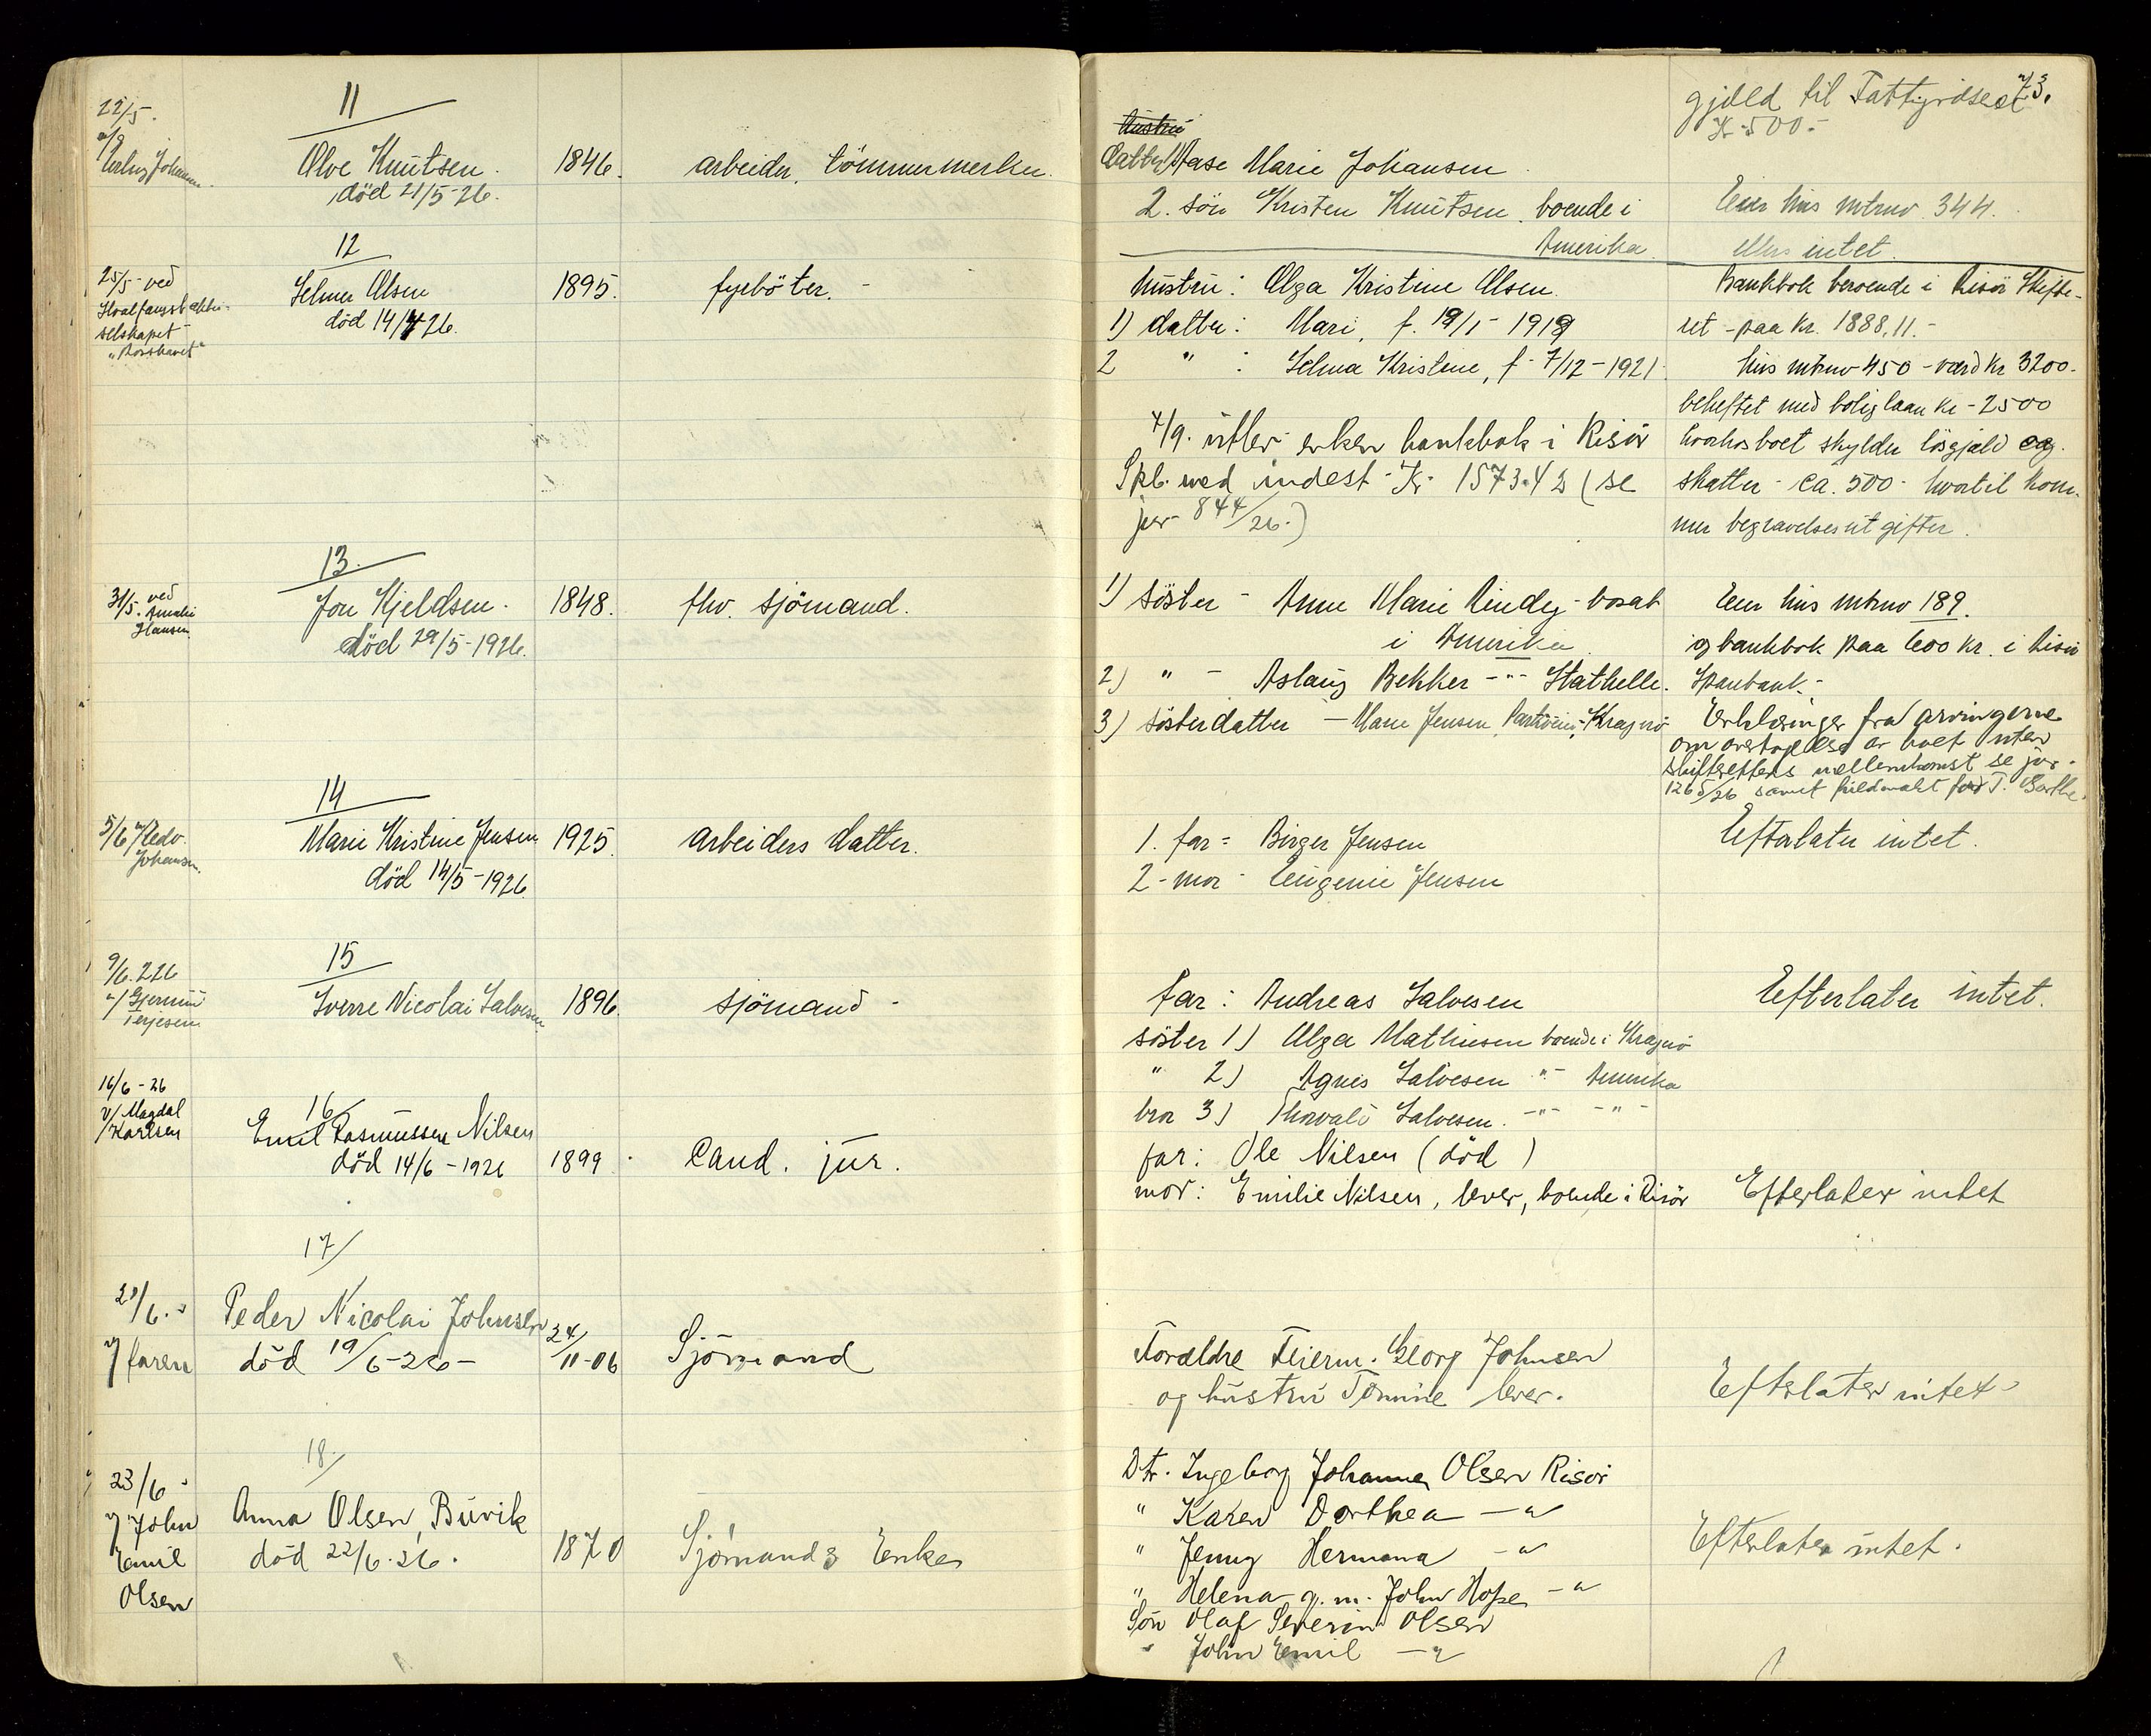 73.
11
22/5.
Olve Knutsen.
død 21/5-26.
1846.
arbeider, tömmermerker.
Hustru
Aase Marie Johansen
2. sön Kristen Knutsen, boende i
Amerika
gjæld til
Kr 500.-
Eier hus mtrno 344.
ellers intet.
12
25/5- ved
Hvalfangstaktie-
selskapet
"Rosshavet"
Selmer Olsen
død 14/4 26.
1895.
fyrböter. -
hustru: Olga Kristine Olsen.
1) datter: Mari, f. 19/1-1919
2 " : Selma Kristene, f. 7/12-1921.
4/9. utlev. enken bankbok i Risör
Spb. med indest. Kr. 1573.42 (se
jur 844/26.)
Bankbok beroende i Risör Skifte-
ret - paa Kr. 1888.11.-
hus mtrno 450 - værd Kr 3200.
beheftet med boliglaan Kr - 2500
hvorhos boet skylder lösgjæld og
skatter - ca. 500 - hvortil kom-
mer begravelsesutgifter.
13.
31/5. ved
Amalie
Hansen
Jon Kjeldsen.
død 29/5-1926.
1848.
fhv. sjömand.
1) söster - Anne Marie Lindey - bosat
i Amerika.
2) " - Aslaug Bekker -"- Stathelle.
3) sösterdatter - Marie Jensen, Kragerö
Eier hus mtrno 189.
og bankbok paa 600 kr. i Risör
Sparebank.-
Erklæringer fra arvingerne
om overtagelse av boet uten
skifterettens mellemkomst se jur.
1265/26 samt fuldmakt for T. Barthe.
14
5/6 v/Fredv.
Johansen.
Marie Kristine Jensen
død 14/5-1926.
1925.
arbeiders datter.
1. far = Birger Jensen
2 - mor - Eugenie Jensen
Efterlater intet.
15
9/6.226
v/ Gjermun
Terjesen
Sverre Nicolai Salvesen
1896.
sjömand -
far: Andreas Salvesen
söster 1) Olga Mathiesen boende i Kragerö
" 2) Agnes Salvesen -"- Amerika
bror 3) Thorvald Salvesen. -"- -"-
Efterlater intet.
16/6-26
v/ Magdal
/Karlsen
16/
Emil Rasmussen Nilsen
död 14/6-1926
1899.
Cand. jur.
far: Ole Nilsen (död)
mor: Emilie Nilsen, lever, boende i Risör
Efterlater intet
17/
21/6.
v/ faren
Peder Nicolai Johnsen
död 19/6-26-
24/11-06
Sjömand
Foraldre Feierm. Georg Johnsen
og hustru Tomine lever.
Efterlater intet
18/
23/6
v/ John
Emil
Olsen
Anna Olsen, Buvik
död 22/6.26.
1870
Sjömands Enke
Dtr. Ingeborg Johanne Olsen Risör
" Karen Dorthea -"-
" Jenny Hermana -"-
" Helena g.m. John Hope -"-
Sön Olaf Severin Olsen
" John Emil -"-
Efterlater intet.